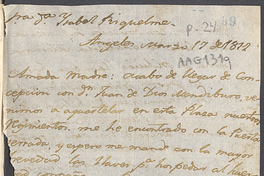 Sra. Da. Ysabel Riquelme.
P-24
AAG1319
Angeles, Marzo 17 de 1814
Amada Madre: acabo de llegar de Con-
cepcion con dn. Juan de Dios Mendiburu, ve-
nimos a aquartelar en esta Plaza nuestros
Regimientos, me he encontrado con la Puerta
cerrada, y espero me mande con la mayor
brevedad las llaves pa. hospedar al buen